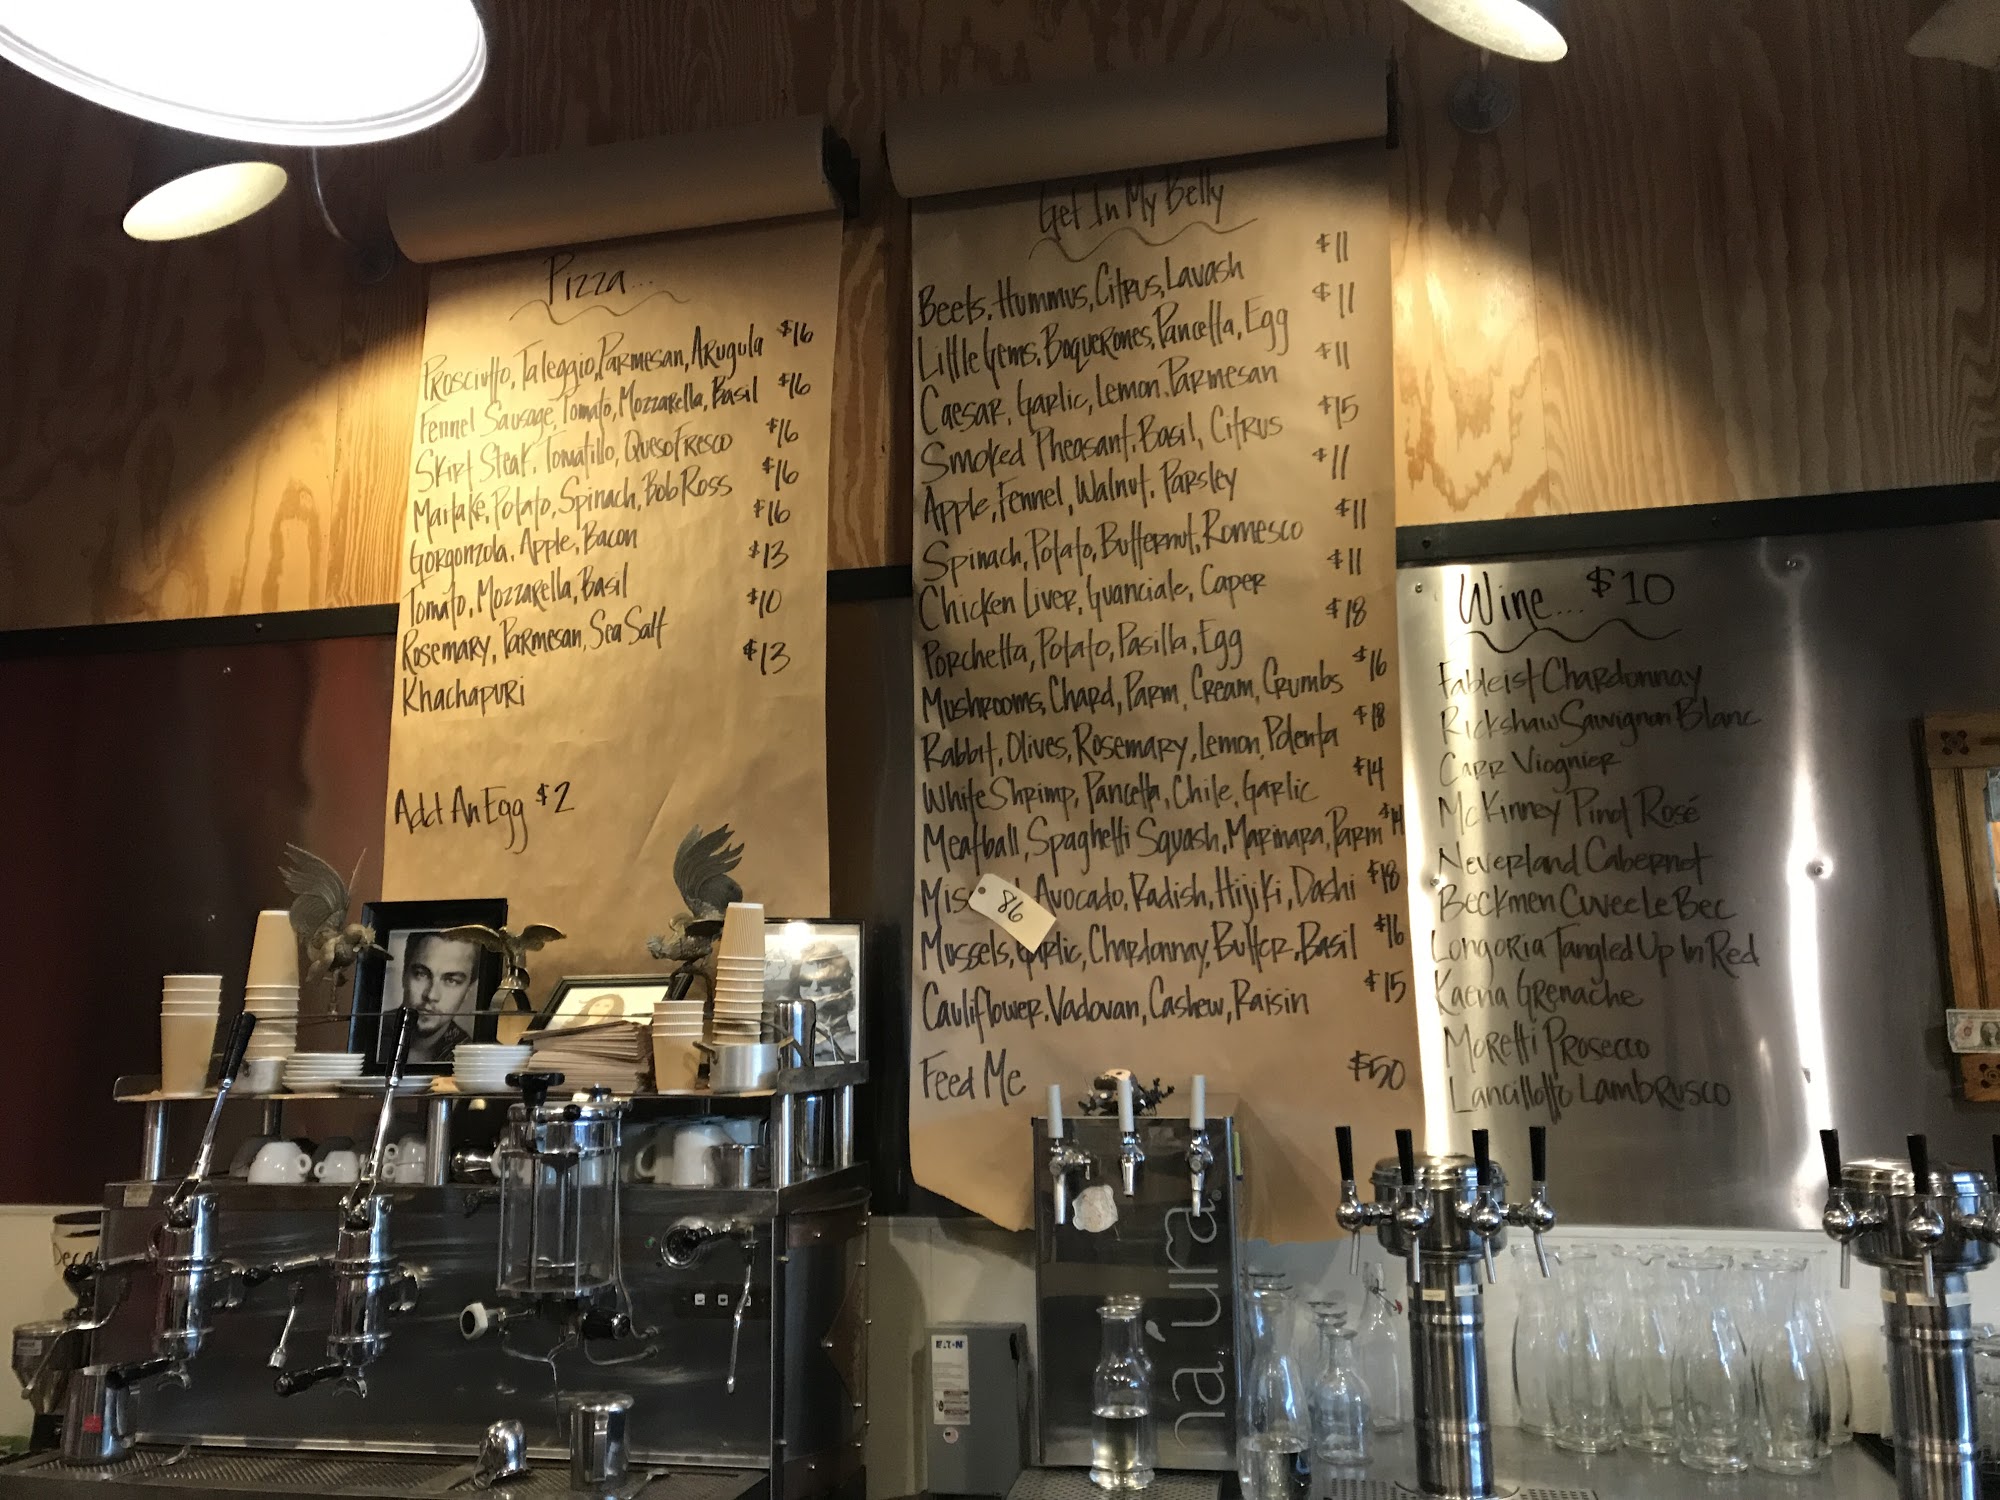 Pizza...
Prosciutto, Taleggio, Parmesan, Arugula $16
Fennel Sausage, Tomato, Mozzarella, Basil $16
Skirt Steak, Tomatillo, Queso Fresco $16
Maitake, Potato, Spinach, Bob Ross $16
Gorgonzola, Apple, Bacon $16
Tomato, Mozzarella, Basil $13
Rosemary, Parmesan, Sea Salt $10
Khachapuri $13
Add An Egg $2
Get In My Belly
Beets, Hummus, Citrus, Lavash $11
Little Gems, Boquerones, Pancetta, Egg $11
Caesar, Garlic, Lemon, Parmesan $11
Smoked Pheasant, Basil, Citrus $15
Apple, Fennel, Walnut, Parsley $11
Spinach, Potato, Butternut, Romesco $11
Chicken Liver, Guanciale, Caper $11
Porchetta, Potato, Pasilla, Egg $18
Mushrooms, Chard, Parm, Cream, Crumbs $16
Rabbit, Olives, Rosemary, Lemon, Polenta $18
White Shrimp, Pancetta, Chile, Garlic $14
Meatball, Spaghetti Squash, Marinara, Parm $14
Avocado, Radish, Hijiki, Dashi $18
86
Mussels, Garlic, Chardonnay, Butter, Basil $16
Cauliflower, Vadovan, Cashew, Raisin $15
Feed Me $50
Wine... $10
Fableist Chardonnay
Rickshaw Sauvignon Blanc
Carr Viognier
McKinney Pinot Rosé
Neverland Cabernet
Beckmen Cuvee Le Bec
Longoria Tangled Up In Red
Kaena Grenache
Moretti Prosecco
Lancillotto Lambrusco
na'ura
EATON